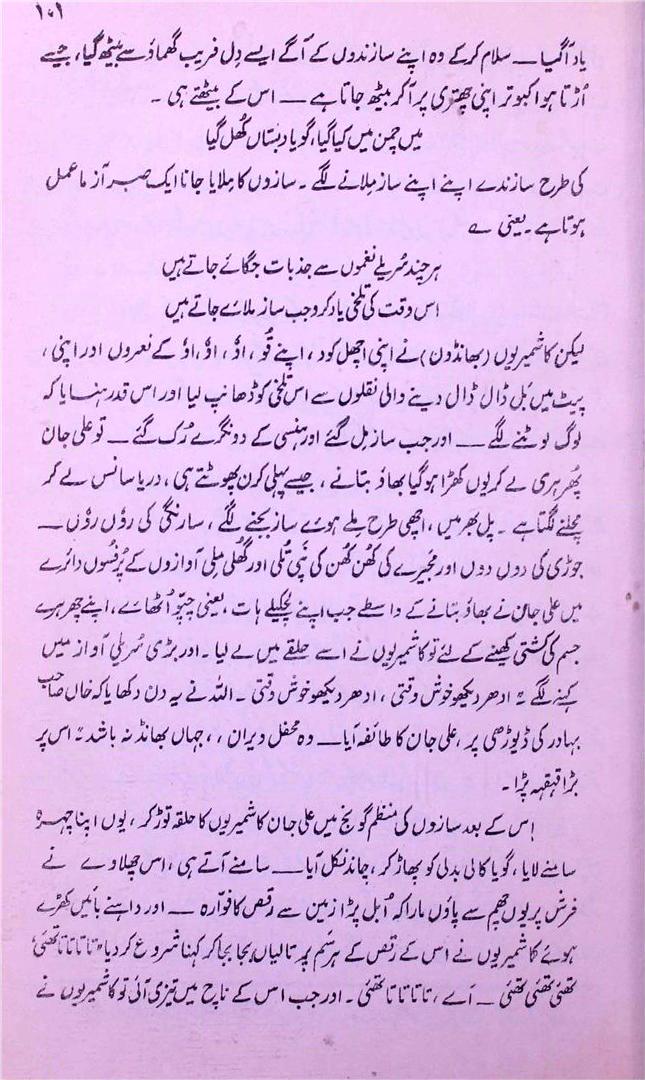 ۱۰۱
یاد آگیا ــ سلام کرکے وہ اپنے سازندوں کے آگے ایسے دِل فریب گھماؤ سے بیٹھ گیا، جیسے
اُڑتا ہوا کبوتر اپنی چھتری پر آکر بیٹھ جاتا ہے ــ اس کے بیٹھتے ہی۔
میں چمن میں کیا گیا، گویا دبستاں کُھل گیا
کی طرح سازندے اپنے اپنے ساز مِلانے لگے۔ سازوں کا مِلایا جانا ایک صبر آزما عمل
ہوتا ہے۔ یعنی ؎
ہر چند سُریلے نغموں سے جذبات جگائے جاتے ہیں
اس وقت کی تلخی یاد کرو جب ساز ملائے جاتے ہیں
لیکن کاشمیریوں (بھانڈون) نے اپنی اچھل کود، اپنے قُو، اوُ، اوُ، اوُ کے نعروں اور اپنی،
پیٹ میں بَل ڈال ڈال دینے والی نقلوں سے اس تلخی کو ڈھانپ لیا اور اس قدر ہنسایا کہ
لوگ لوٹنے لگے ــ اور جب ساز مِل گئے اور ہنسی کے دونگرے رُک گئے ــ تو علی جان
پُھرہری لے کر یوں کھڑا ہو گیا بھاؤ بتانے، جیسے پہلی کرن پھوٹتے ہی، دریا سانس لے کر
مچلنے لگتا ہے۔ پل بھر میں، اچھی طرح مِلے ہوئے ساز بجنے لگے، سارنگی کی روُں روُں ــ
جوڑی کی دوں دوں اور مجیرے کی کُھن کُھن کی نَپی تُلی اور گُھلی مِلی آوازوں کے پُرفسُوں دائرے
میں علی جان نے بھاؤ بتانے کے واسطے جب اپنے لچکیلے ہات، یعنی چپّو اُٹھائے، اپنے چھریرے
جسم کی کشتی کھینے کے لئے تو کاشمیریوں نے اسے حلقے میں لے لیا۔ اور بڑی سُریلی آواز میں
کہنے لگے "ادھر دیکھو خوش وقتی، ادھر دیکھو خوش وقتی۔ اللہ نے یہ دن دکھایا کہ خاں صاحب
بہادر کی ڈیوڑھی پر، علی جان کا طائفہ آیا ــ وہ محفل ویران،، جہاں بھانڈ نہ باشد" اس پر
بڑا قہقہہ پڑا۔
اس کے بعد سازوں کی منظم گونج میں علی جان کاشمیریوں کا حلقہ توڑ کر، یوں اپنا چہرہ
سامنے لایا، گویا کالی بدلی کو پھاڑ کر، چاند نکل آیا ــ سامنے آتے ہی، اس چھلاوے نے
فرش پر یوں چھم سے پاؤں مارا کہ اُبل پڑا زمین سے رقص کا فوّارہ ــ اور داہنے بائیں کھڑے
ہوئے کاشمیریوں نے اس کے رقص کے ہر سَم پر تالیاں بجا بجا کر کہنا شروع کر دیا "تا تا تا تا تھئی،
تھئی تھئی تھئی ــ آے، تا تا تا تا تھئی۔ اور جب اس کے ناچ میں تیزی آئی تو کاشمیریوں نے